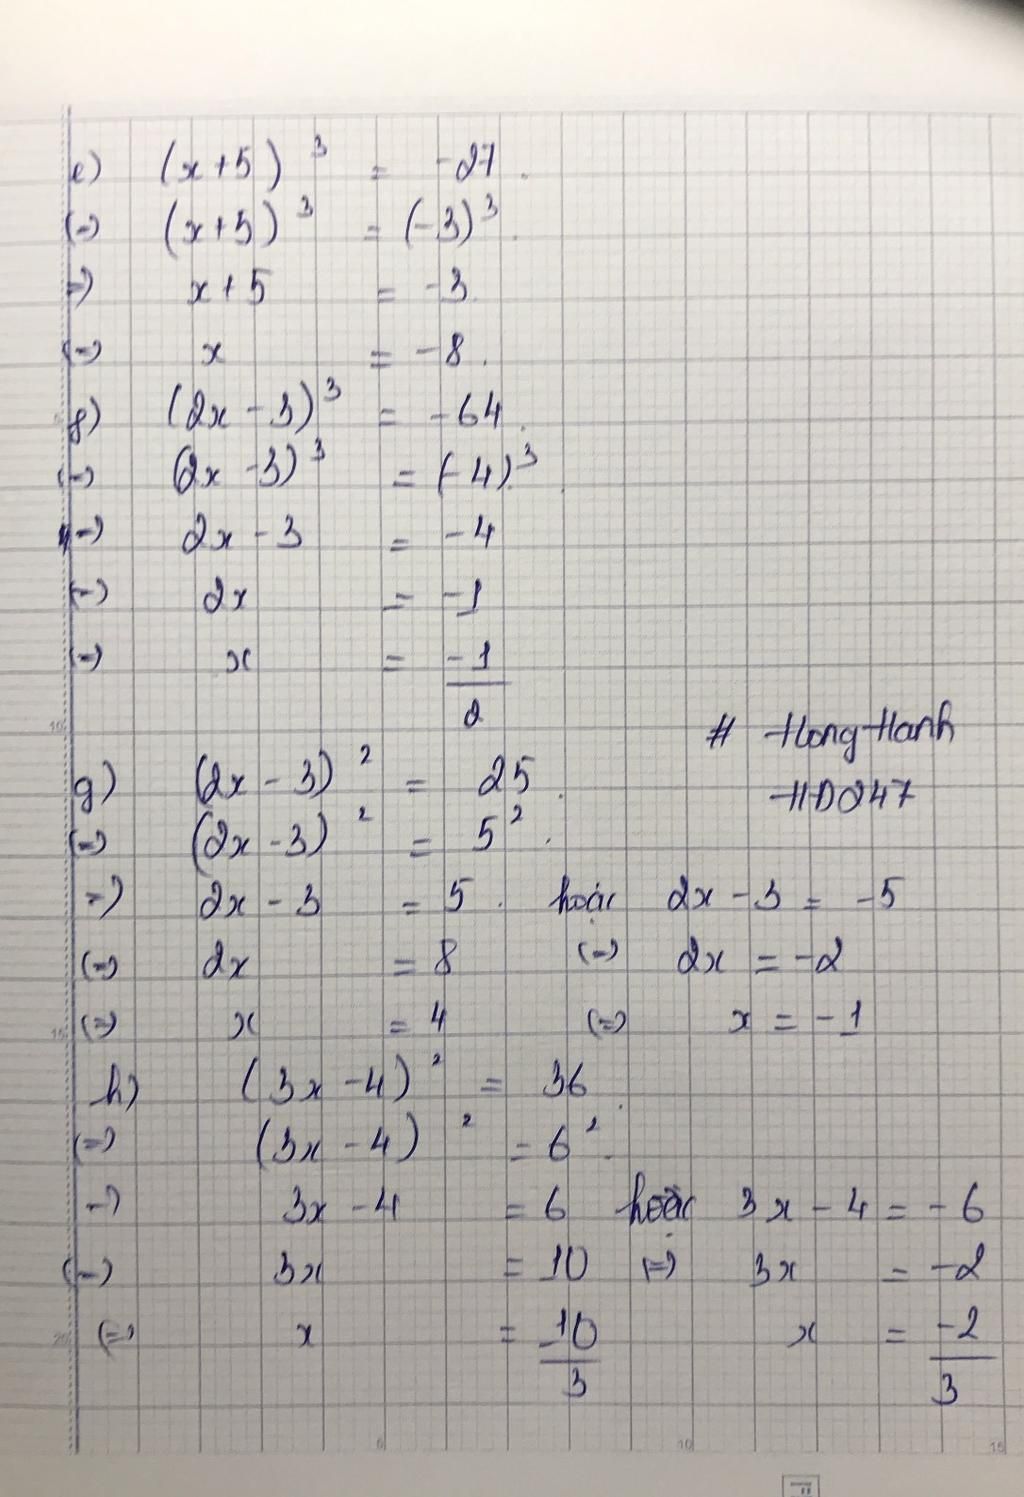 e) (x+5)³ = -27.
(=) (x+5)³ = (-3)³.
=) x+5 = -3.
(=) x = -8.
f) (2x-3)³ = -64.
(=) (2x-3)³ = (-4)³.
=) 2x-3 = -4
(=) 2x = -1
(=) x = -1/2
# Hong Hanh
HD247
g) (2x-3)² = 25.
(=) (2x-3)² = 5².
=) 2x-3 = 5. hoặc 2x-3 = -5
(=) 2x = 8 (=) 2x = -2
(=) x = 4 (=) x = -1
h) (3x-4)² = 36.
(=) (3x-4)² = 6².
=) 3x-4 = 6 hoặc 3x-4 = -6
(=) 3x = 10 (=) 3x = -2
(=) x = 10/3 x = -2/3
5 10 15